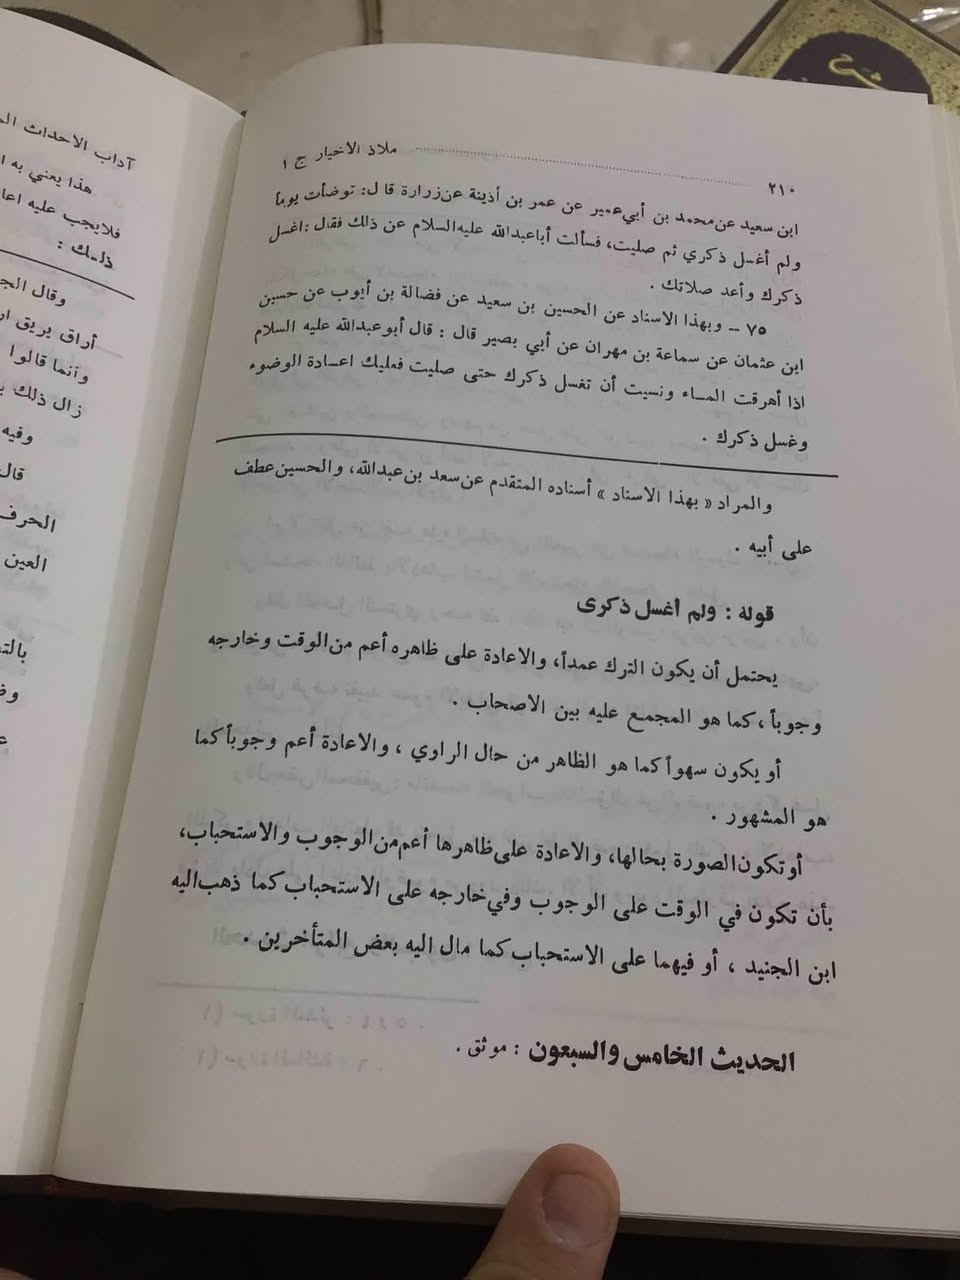 ٢١٠ ملاذ الاخيار ج ١
ابن سعيد عن محمد بن أبي عمير عن عمر بن أذينة عن زرارة قال: توضأت يوماً
ولم أغسل ذكري ثم صليت، فسألت أبا عبدالله عليه السلام عن ذلك فقال : اغسل
ذكرك وأعد صلاتك .
٧٥ ــ وبهذا الاسناد عن الحسين بن سعيد عن فضالة بن أيوب عن حسين
ابن عثمان عن سماعة بن مهران عن أبي بصير قال : قال أبو عبدالله عليه السلام
اذا أهرقت المــاء ونسيت أن تغسل ذكرك حتى صليت فعليك اعــادة الوضوء
وغسل ذكرك .
والمراد « بهذا الاسناد » أسناده المتقدم عن سعد بن عبدالله، والحسين عطف
على أبيه .
قوله : ولم أغسل ذكرى
يحتمل أن يكون الترك عمداً، والاعادة على ظاهره أعم من الوقت وخارجه
وجوباً ، كما هو المجمع عليه بين الاصحاب .
أو يكون سهواً كما هو الظاهر من حال الراوي ، والاعادة أعم وجوباً كما
هو المشهور .
أو تكون الصورة بحالها، والاعادة على ظاهرها أعم من الوجوب والاستحباب،
بأن تكون في الوقت على الوجوب وفي خارجه على الاستحباب كما ذهب اليه
ابن الجنيد ، أو فيهما على الاستحباب كما مال اليه بعض المتأخرين .
الحديث الخامس والسبعون : موثق .
آداب الاحداث
هذا يعني به
فلا يجب عليه
ذلـك :
وقال
أراق بريق
وانما قالوا
زال ذلك
وفيه
قال
الحرف
العين